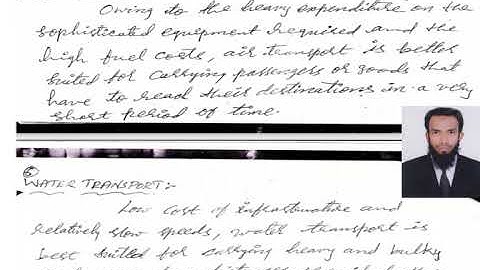 Owing to the heavy expenditure on the
sophisticated equipment required and the
high fuel costs, air transport is better
suited for carrying passengers or goods that
have to read their destinations in a very
short period of time.
⑥
WATER TRANSPORT:-
Low cost of infrastructure and
relatively slow speeds, water transport is
best suited for carrying heavy and bulky